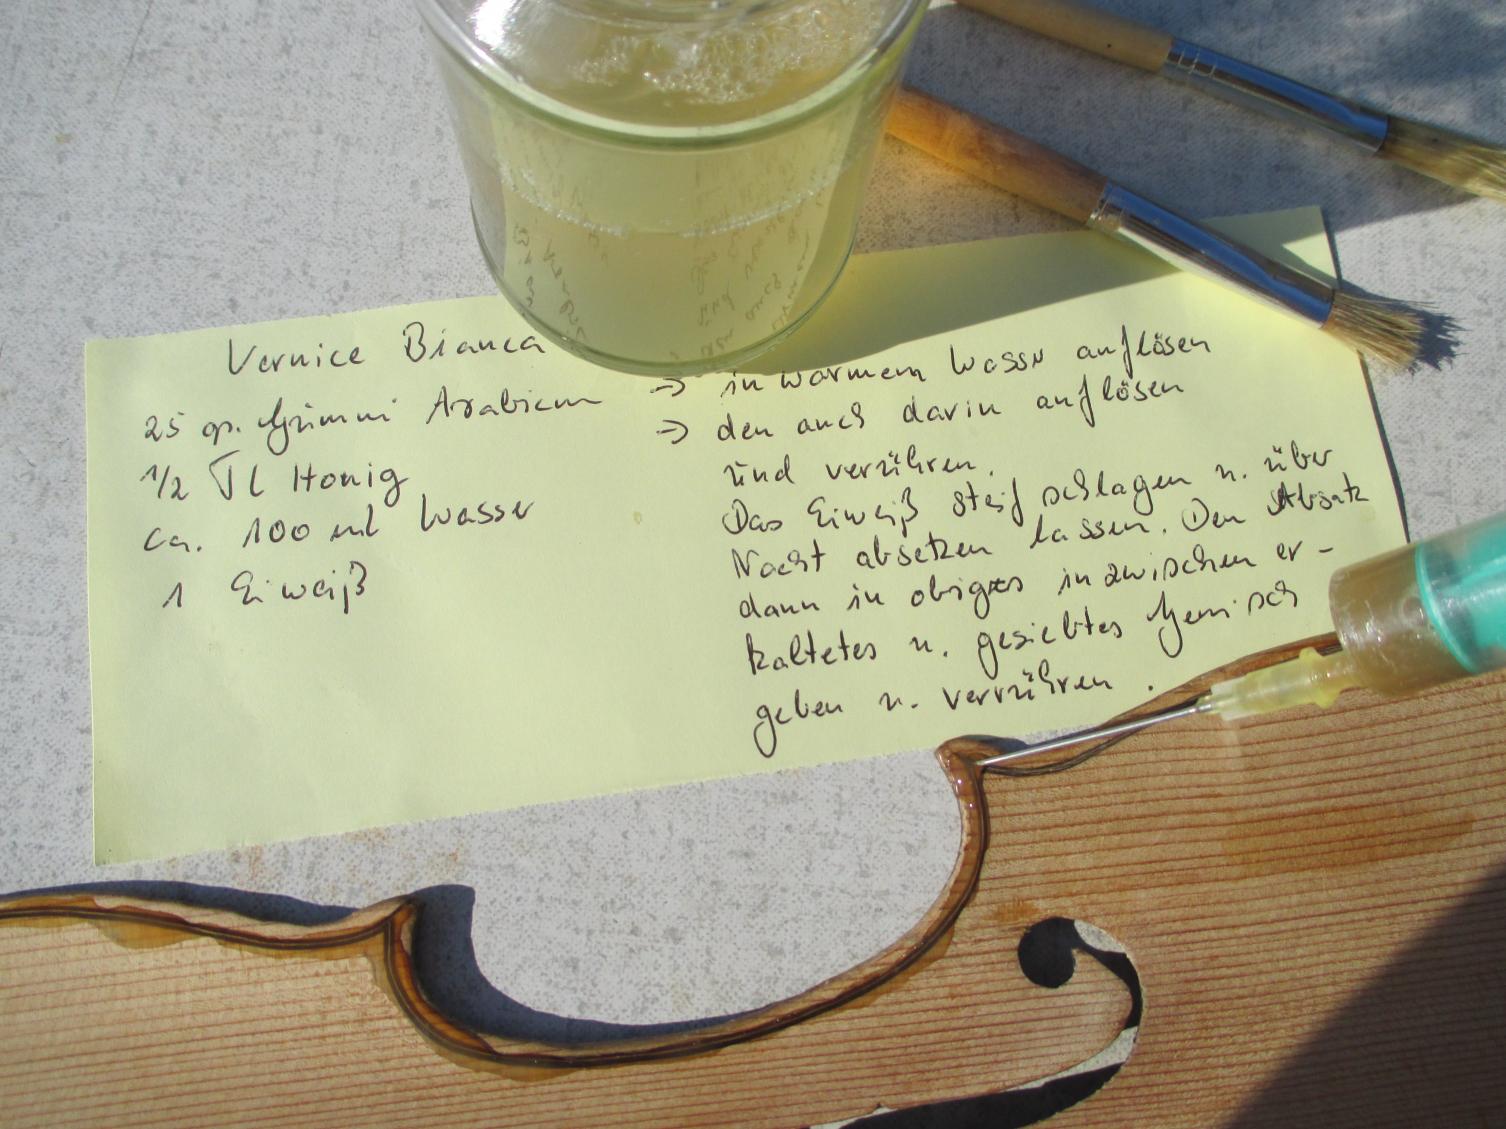 Vernice Bianca
25 gr. Gummi Arabicum → in warmem Wasser auflösen
1/2 TL Honig → den auch darin auflösen
und verrühren.
ca. 100 ml Wasser
1 Eiweiß
Das Eiweiß steif schlagen u. über
Nacht absetzen lassen. Den Absatz
dann in obiges inzwischen er-
kaltetes u. gesiebtes Gemisch
geben u. verrühren.